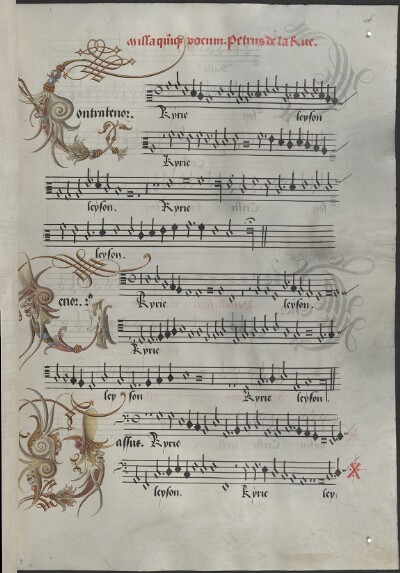 Missa quinque vocum. Petrus de la Rue.
Contratenor.
Kyrie leyson
Kyrie
leyson. Kyrie leyson
leyson.
Tenor
Kyrie leyson.
Kyrie
ley son Kyrie leyson.
Bassus. Kyrie
leyson. Kyrie ley.